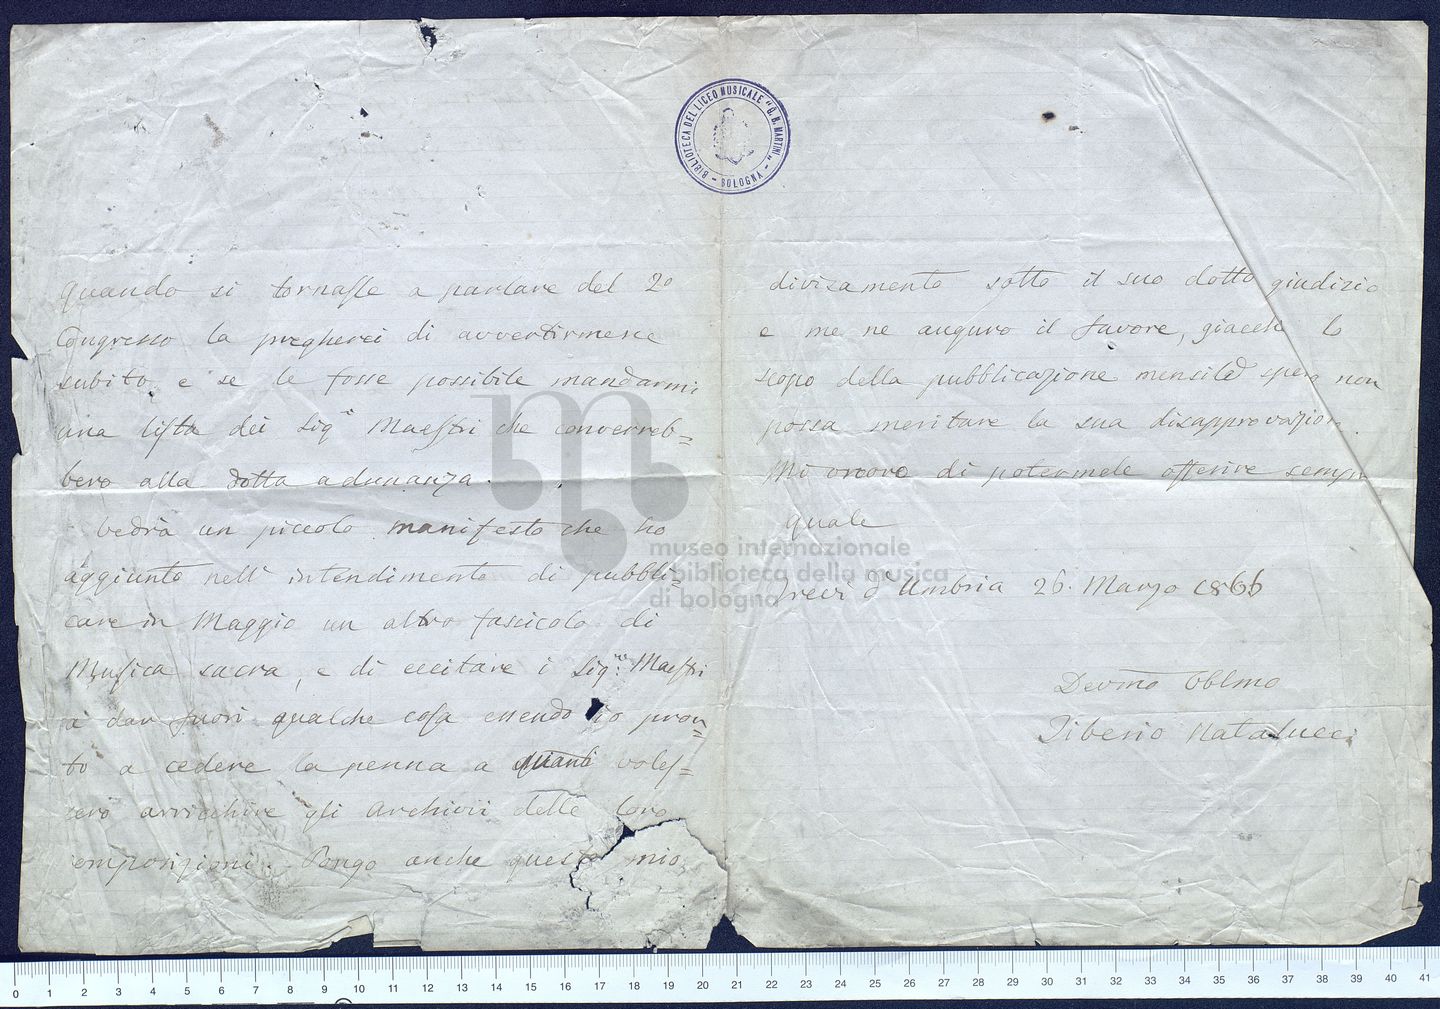 BIBLIOTECA DEL LICEO MUSICALE "G. B. MARTINI" - BOLOGNA -
quando si tornasse a parlare del 2º
Congresso la pregherei di avvertirmene
subito, e se le fosse possibile mandarmi
una lista dei Sigri Maestri che converreb=
bero alla dotta adunanza.
Vedrà un piccolo manifesto che ho
aggiunto nell'intendimento di pubbli=
care in Maggio un altro fascicolo di
Musica sacra, e di eccitare i Sigri Maestri
a dar fuori qualche cosa essendo io pron=
to a cedere la penna a quanti voles=
sero arricchire gli archivii delle loro
composizioni. Pongo anche questo mio
divisamento sotto il suo dotto giudizio
e me ne auguro il favore, giacchè lo
scopo della pubblicazione mensile spero non
possa meritare la sua disapprovazione.
Mi onoro di potermele offerire sempre
quale
Trevi d'Umbria 26. Marzo 1866
Devmo Obblmo
Tiberio Natalucci
museo internazionale
e biblioteca della musica
di bologna
0 1 2 3 4 5 6 7 8 9 10 11 12 13 14 15 16 17 18 19 20 21 22 23 24 25 26 27 28 29 30 31 32 33 34 35 36 37 38 39 40 41